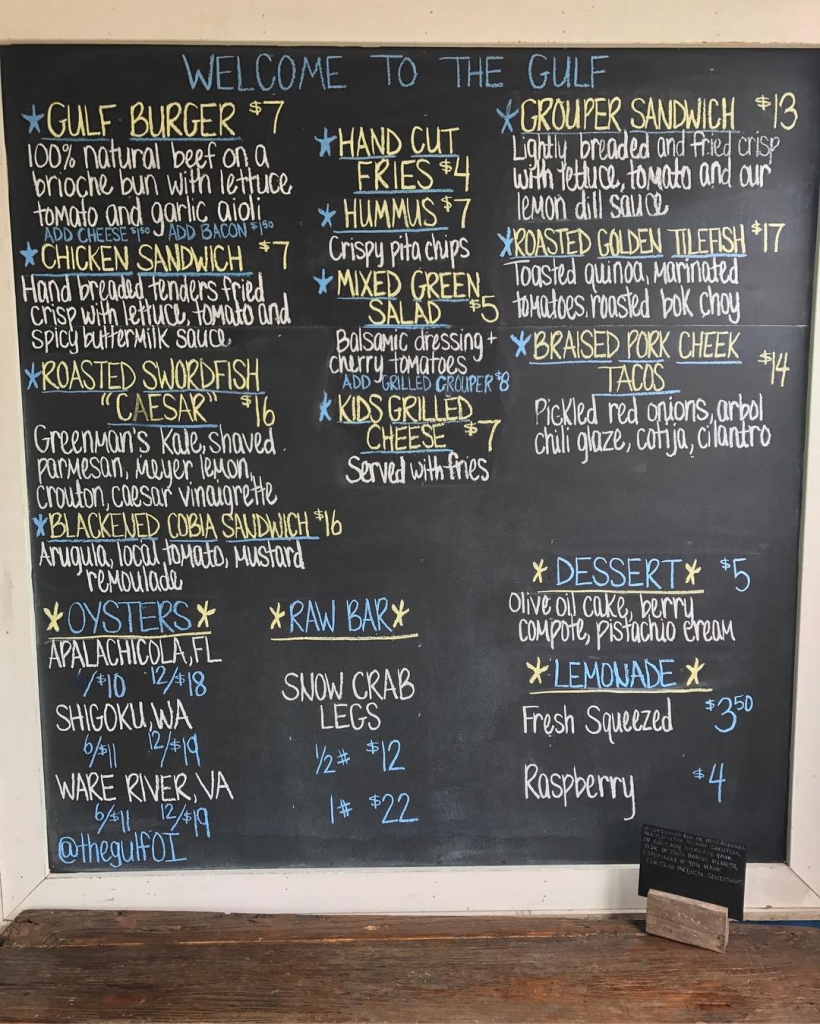 WELCOME TO THE GULF
GULF BURGER $7
100% natural beef on a
brioche bun with lettuce
tomato and garlic aioli
ADD CHEESE $1.50 ADD BACON $1.50
CHICKEN SANDWICH $7
Hand breaded tenders fried
crisp with lettuce, tomato and
spicy buttermilk sauce
ROASTED SWORDFISH
"CAESAR" $16
Greenman's Kale, shaved
parmesan, mayer lemon,
crouton, caesar vinaigrette
BLACKENED COBIA SANDWICH $16
Arugula, local tomato, mustard
remoulade
HAND CUT
FRIES $4
HUMMUS $7
Crispy pita chips
MIXED GREEN
SALAD $5
Balsamic dressing +
cherry tomatoes
ADD GRILLED GROUPER $8
KIDS GRILLED
CHEESE $7
Served with fries
GROUPER SANDWICH $13
Lightly breaded and fried crisp
with lettuce, tomato and our
lemon dill sauce
ROASTED GOLDEN TILEFISH $17
Toasted quinoa, marinated
tomatoes, roasted bok choy
BRAISED PORK CHEEK
TACOS $14
Pickled red onions, arbol
chili glaze, cotija, cilantro
OYSTERS
APALACHICOLA, FL
6/$10 12/$18
SHIGOKU, WA
6/$11 12/$19
WARE RIVER, VA
6/$11 12/$19
@thegulfOI
RAW BAR
SNOW CRAB
LEGS
1/2# $12
1# $22
DESSERT $5
Olive oil cake, berry
compote, pistachio cream
LEMONADE
Fresh Squeezed $3.50
Raspberry $4